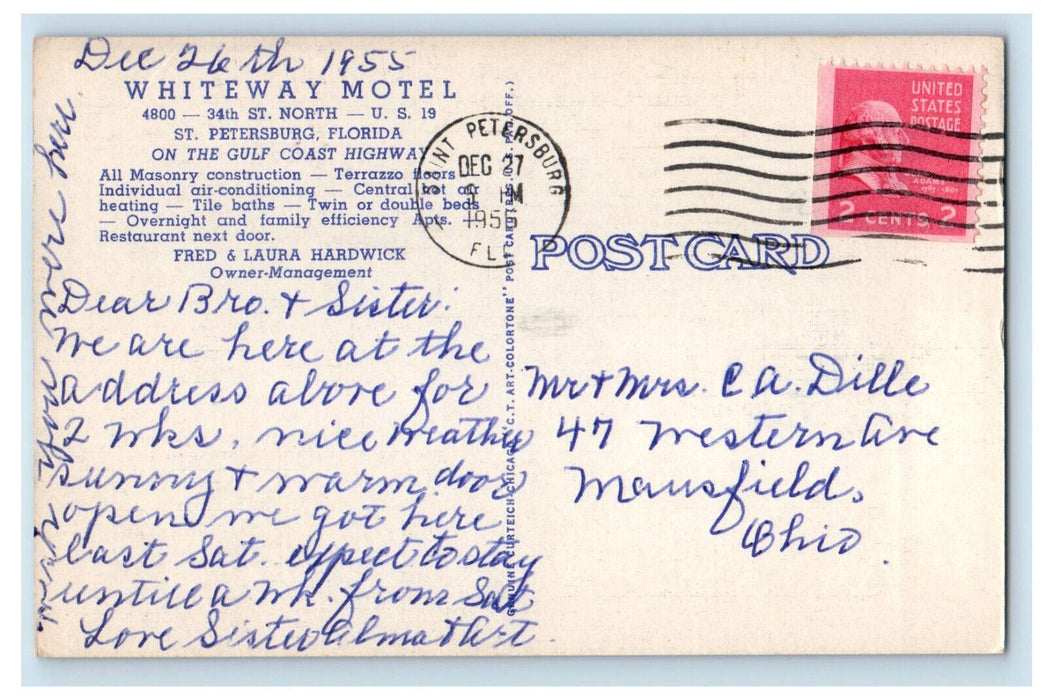 Dec 26th 1955
WHITEWAY MOTEL
4800 — 34th ST. NORTH — U. S. 19
ST. PETERSBURG, FLORIDA
ON THE GULF COAST HIGHWAY
All Masonry construction — Terrazzo floors —
Individual air-conditioning — Central hot air
heating — Tile baths — Twin or double beds
— Overnight and family efficiency Apts. —
Restaurant next door.
FRED & LAURA HARDWICK
Owner-Management
Dear Bro. + Sister:
We are here at the
address above for
2 wks, nice weather
sunny + warm. door
open we got here
last Sat. expect to stay
untill a wk. from Sat
Love Sister Alma + Art.
wish you were here.
GENUINE CURTEICH-CHICAGO "C.T. ART-COLORTONE" POST CARD OFF.)
SAINT PETERSBURG
DEC 27
PM
1955
FLA
UNITED
STATES
POSTAGE
ADAMS
1797-1801
2 CENTS 2
POST CARD
Mr + Mrs. C A. Dille
47 Western Ave
Mansfield,
Ohio.